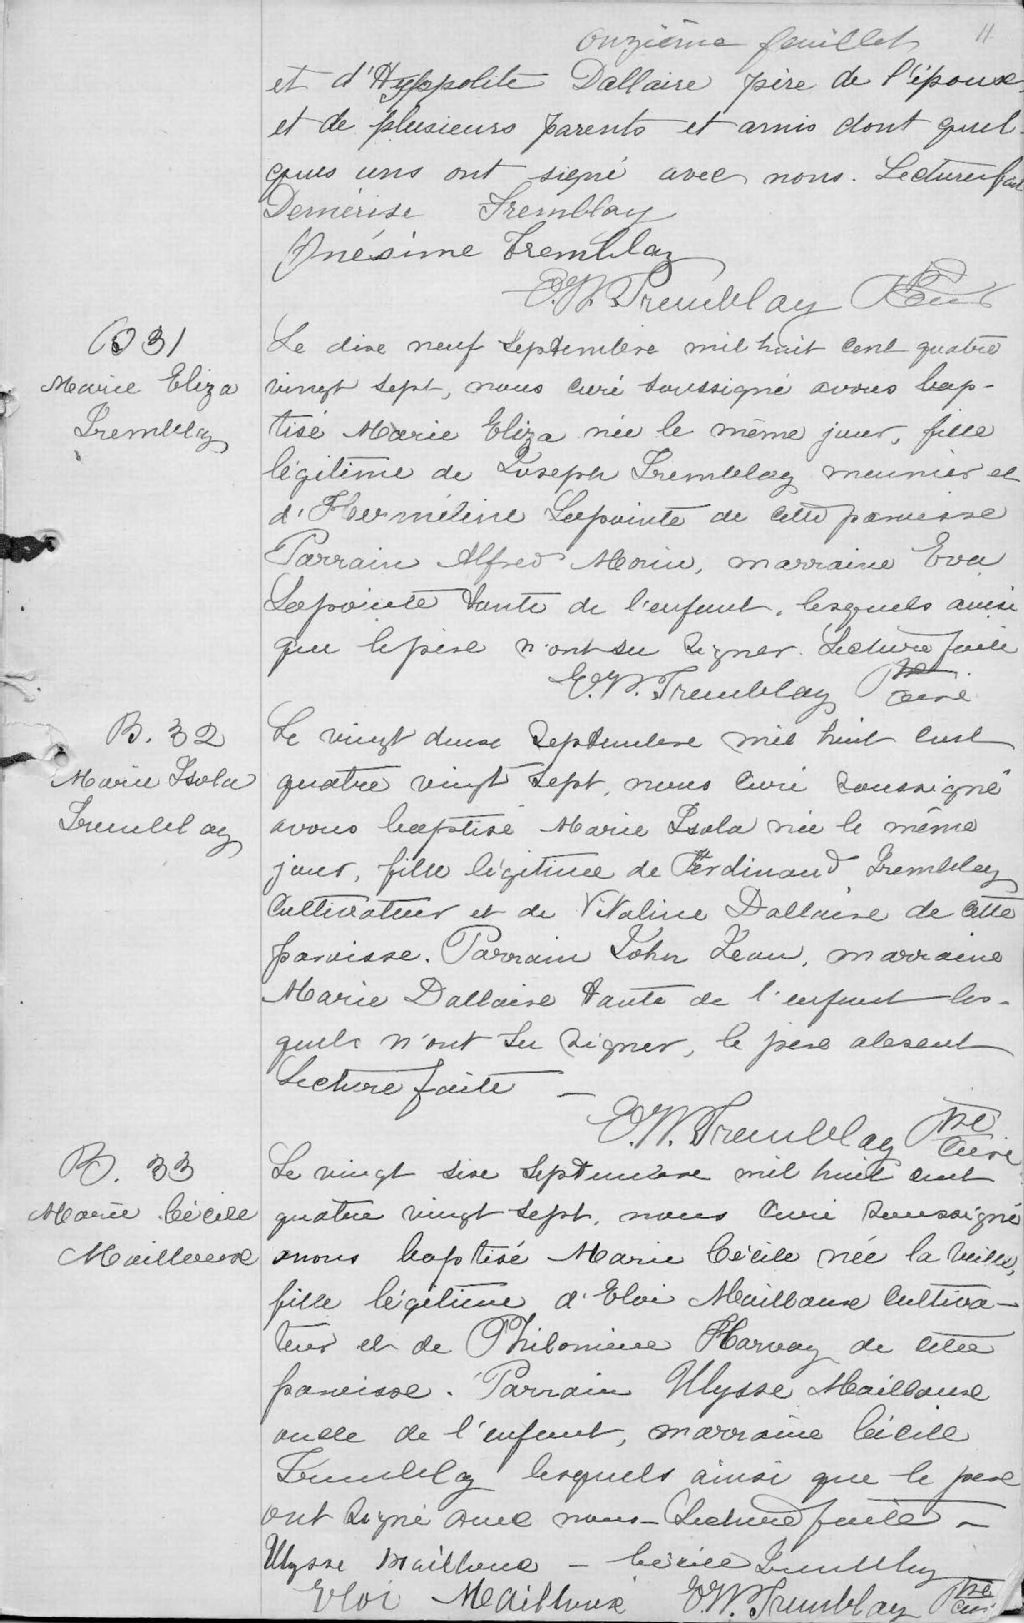 onzième feuillet 11
et d'Hyppolite Dallaire père de l'épouse,
et de plusieurs parents et amis dont quel-
ques uns ont signé avec nous. Lecture faite
Demerise Tremblay
Onésime Tremblay
E.W. Tremblay Ptre Curé
B 31
Marie Eliza
Tremblay
Le dix neuf Septembre mil huit cent quatre
vingt sept, nous curé soussigné avons bap-
tisé Marie Eliza née le même jour, fille
légitime de Joseph Tremblay meunier et
d'Herméline Lapointe de cette paroisse
Parrain Alfred Morin, marraine Eva
Lapointe tante de l'enfant, lesquels ainsi
que le père n'ont su signer. Lecture faite
E.W. Tremblay Ptre curé
B. 32
Marie Isola
Tremblay
Le vingt deux Septembre mil huit cent
quatre vingt sept, nous curé soussigné
avons baptisé Marie Isola née le même
jour, fille légitime de Ferdinand Tremblay
cultivateur et de Vitaline Dallaire de cette
paroisse. Parrain John Kean, marraine
Marie Dallaire tante de l'enfant les-
quels n'ont su signer, le père absent
Lecture faite —
E.W. Tremblay Ptre Curé
B. 33
Marie Cécile
Mailloux
Le vingt six Septembre mil huit cent
quatre vingt sept, nous curé soussigné
avons baptisé Marie Cécile née la veille,
fille légitime d'Eloi Mailloux cultiva-
teur et de Philomène Harvay de cette
paroisse. Parrain Ulysse Mailloux
oncle de l'enfant, marraine Cécile
Tremblay lesquels ainsi que le père
ont signé avec nous – Lecture faite –
Ulysse Mailloux – Cécile Tremblay
Eloi Mailloux E.W. Tremblay Ptre curé